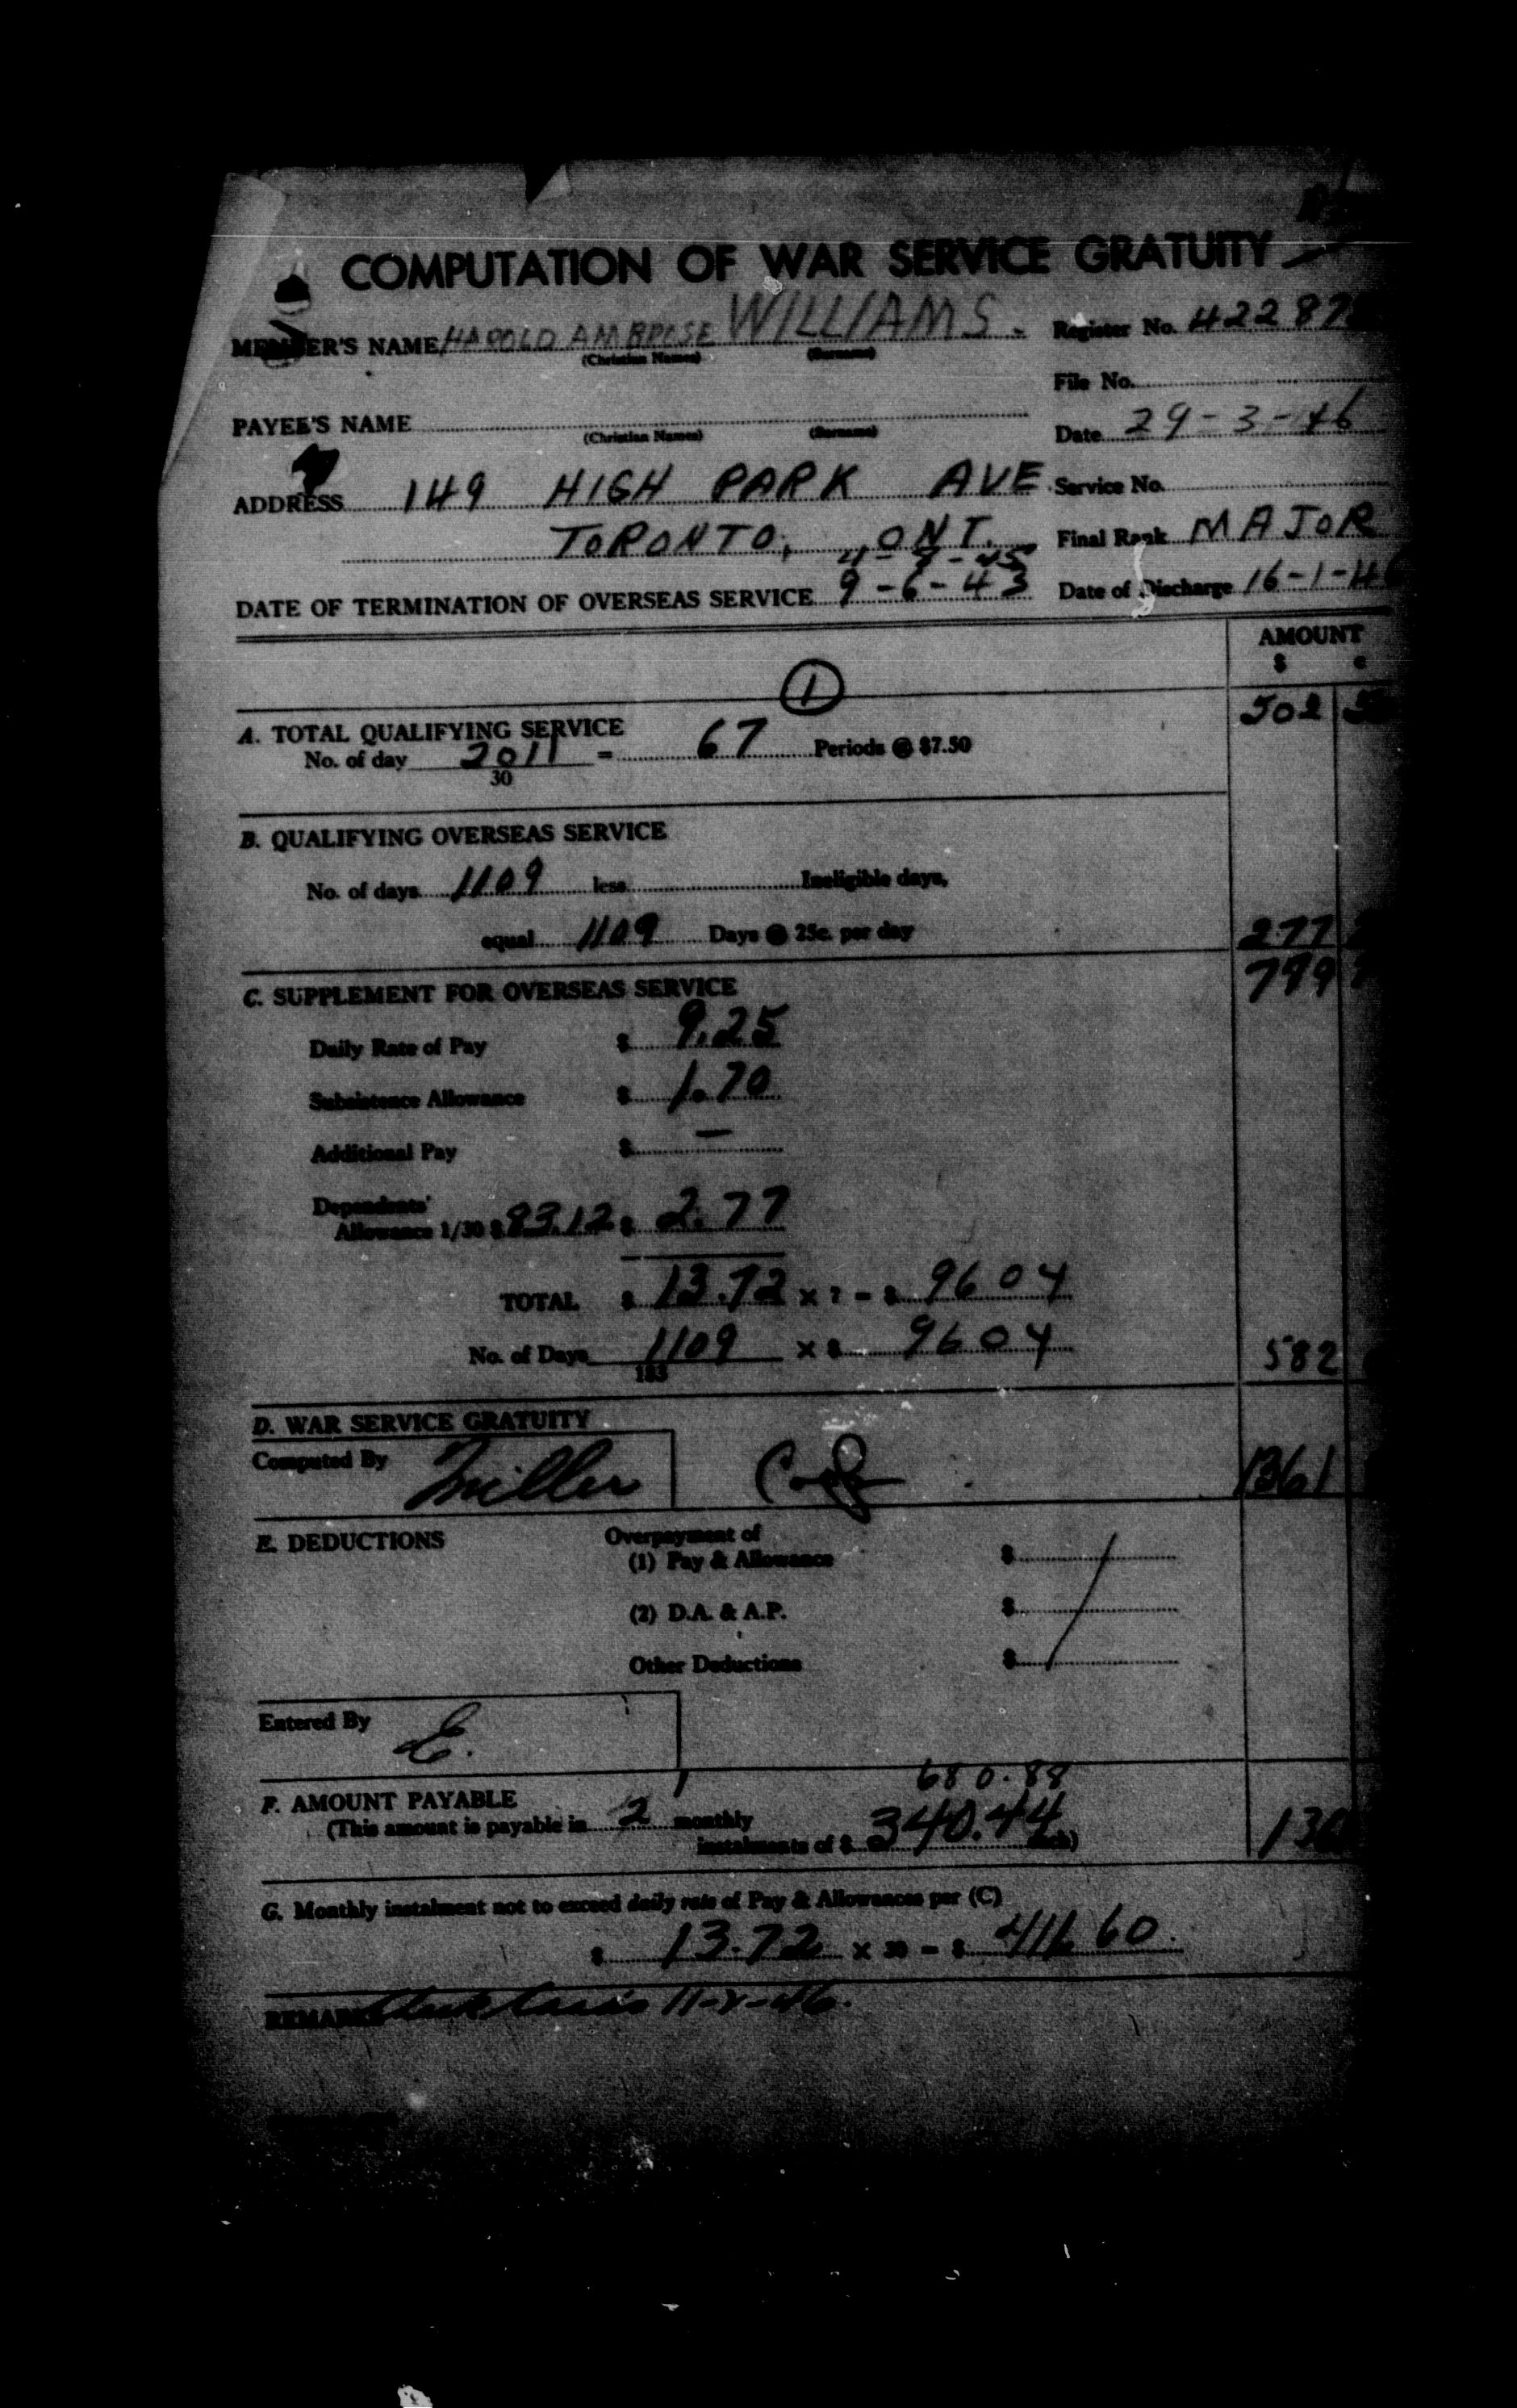 COMPUTATION OF WAR SERVICE GRATUITY
MEMBER'S NAME HAROLD AMBROSE WILLIAMS. Register No. 42287
(Christian Names) (Surname)
File No.
PAYEE'S NAME
(Christian Names) (Surname)
Date 29-3-46
ADDRESS 149 HIGH PARK AVE Service No.
TORONTO, ONT. Final Rank MAJOR
4-7-45
DATE OF TERMINATION OF OVERSEAS SERVICE 9-6-43 Date of Discharge 16-1-46
AMOUNT
$ c
1
A. TOTAL QUALIFYING SERVICE 502
No. of day 2011 = 67 Periods @ $7.50
30
B. QUALIFYING OVERSEAS SERVICE
No. of days 1109 less Ineligible days,
equal 1109 Days @ 25c. per day 277
C. SUPPLEMENT FOR OVERSEAS SERVICE 779
Daily Rate of Pay $ 9.25
Subsistence Allowance $ 1.70
Additional Pay $ —
Dependents'
Allowance 1/30 $ 83.12 $ 2.77
TOTAL $ 13.72 x 7 = $ 96 04
No. of Days 1109 X $ 96 04 582
183
D. WAR SERVICE GRATUITY
Computed By Miller 1361
E. DEDUCTIONS Overpayment of
(1) Pay & Allowance $
(2) D.A. & A.P. $
Other Deductions $
Entered By E.
680.88
F. AMOUNT PAYABLE
(This amount is payable in 2 monthly
instalments of $ 340.44 each) 136
G. Monthly instalment not to exceed daily rate of Pay & Allowances per (C)
$ 13.72 x 30 = $ 411 60
REMARKS 11-2-46.